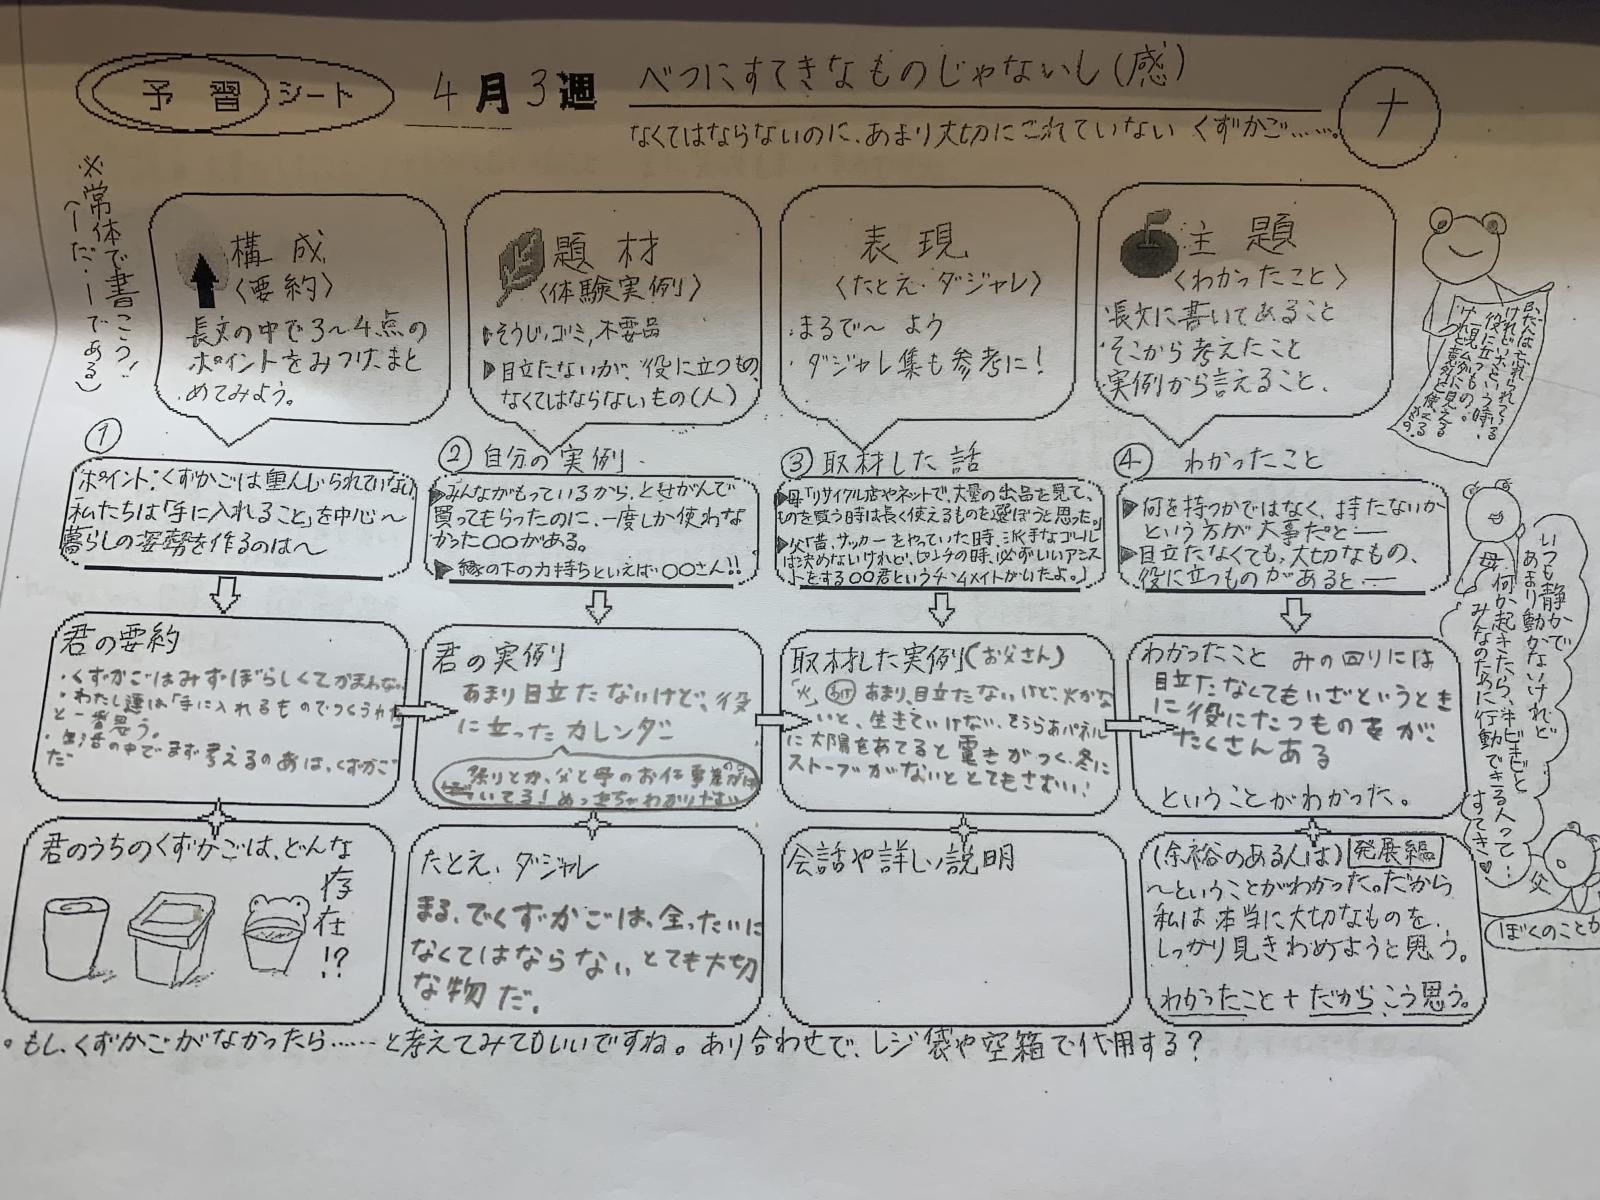 予習シート
4月3週
べつにすてきなものじゃないし(感)
なくてはならないのに、あまり大切にされていない くずかご……。
ナ
※常体で書こう!
(ーだ・ーである)
構成
〈要約〉
長文の中で3〜4点の
ポイントをみつけ、まと
めてみよう。
題材
〈体験実例〉
そうじ,ゴミ,不要品
目立たないが、役に立つもの、
なくてはならないもの(人)
表現
〈たとえ・ダジャレ〉
・まるで〜 よう
・ダジャレ集も参考に!
主題
〈わかったこと〉
・長文に書いてあること
・そこから考えたこと
・実例から言えること、
①
ポイント:くずかごは重んじられていない
私たちは「手に入れること」を中心〜
暮らしの姿勢を作るのは〜
② 自分の実例
▶みんながもっているから、とせがんで
買ってもらったのに、一度しか使わな
かった〇〇がある。
▶縁の下の力持ちといえば〇〇さん!!
③ 取材した話
▶母「リサイクル店やネットで、大量の出品を見て、
ものを買う時は長く使えるものを選ぼうと思った。」
▶父「昔、サッカーをやっていた時、派手なゴール
は決めないけれど、ピンチの時、必ずいいアシス
トをする〇〇君というチームメイトがいたよ。」
④ わかったこと
▶何を持つかではなく、持たないか
という方が大事だと―
▶目立たなくても、大切なもの、
役に立つものがあると―
君の要約
・くずかごはみすぼらしくてかまわない
・わたし達は「手に入れるもので
と一番思う。
・生活の中でまず考えるのは、くずかご
だ
君の実例
あまり目立たないけど、役
に立ったカレンダー
祭りとか、父と母のお仕事
いてる!めっちゃわかりやすい
取材した実例(お父さん)
「火」あまり、目立たないけど、火がな
いと、生きていけない、そうらあパネル
に太陽をあてると電きがつく、冬に
ストーブがないととてもさむい!
わかったこと みの回りには
目立たなくてもいざというとき
に役にたつものが、
たくさんある
ということがわかった。
君のうちのくずかごは、どんな
存在!?
たとえ、ダジャレ
まる、でくずかごは、全ったいに
なくてはならない、とても大切
な物だ。
会話や詳しい説明
(余裕のある人は)発展編
〜ということがわかった。だから
私は本当に大切なものを、
しっかり見きわめようと思う。
わかったこと+だから、こう思う。
いつも静かで
あまり動かないけれど
何か起きたら、キビキビと
みんなのために行動できる人って…
すてき♥
母
父
ぼくのことか
。もし、くずかごがなかったら……と考えてみてもいいですね。あり合わせで、レジ袋や空箱で代用する?